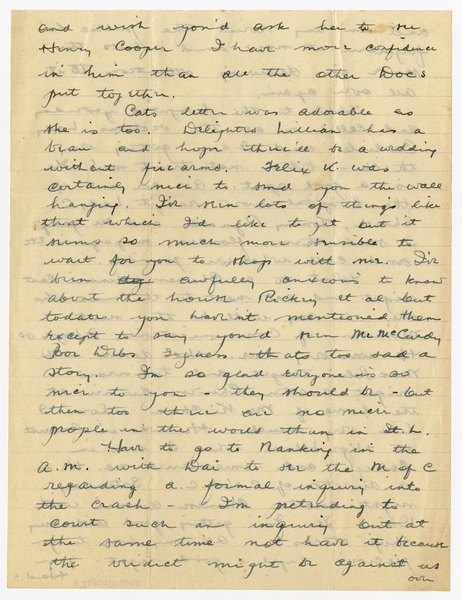 and wish you'd ask her to see
Henry Cooper I have more confidence
in him than all the other Docs
put together.
Cats letter was adorable as
she is too. Delighted Lillian has a
beau and hope there'll be a wedding
without firearms. Felix K. was
certainly nice to send you the wall
hanging. I've seen lots of things like
that which I'd like to get but it
seems so much more sensible to
wait for you to shop with me. I've
been awfully anxious to know
about the house Rickey et al but
to date you haven't mentioned them
except to say you'd seen Mr McCurdy
Poor I guess thats too sad a
story. I'm so glad everyone is so
nice to you - they should be - but
then too there are no nicer
people in the world than in St. L.
Have to go to Nanking in the
A.M. with Dai to see the M of C
regarding a formal inquiry into
the crash - I'm pretending to
court such an inquiry but at
the same time not have it because
the verdict might be against us
over